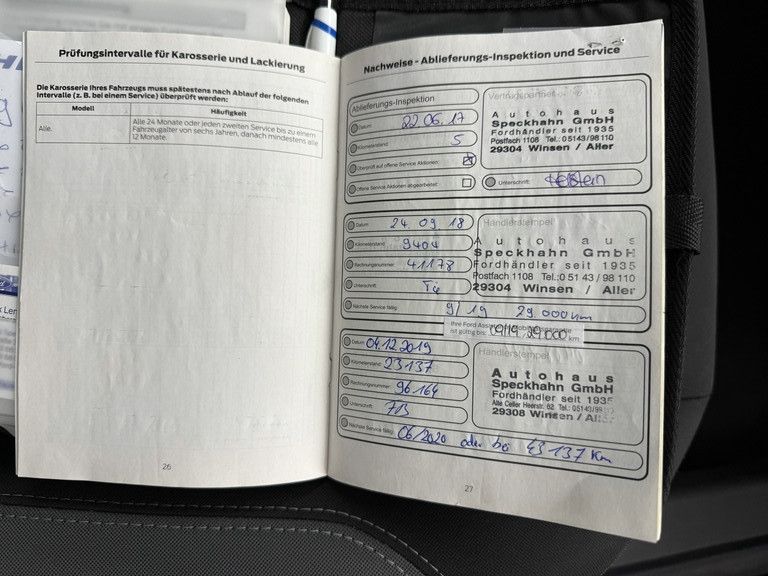 Prüfungsintervalle für Karosserie und Lackierung
Die Karosserie Ihres Fahrzeugs muss spätestens nach Ablauf der folgenden
Intervalle (z. B. bei einem Service) überprüft werden:
Modell
Häufigkeit
Alle.
Alle 24 Monate oder jeden zweiten Service bis zu einem
Fahrzeugalter von sechs Jahren, danach mindestens alle
12 Monate.
26
Nachweise - Ablieferungs-Inspektion und Service
Ablieferungs-Inspektion
Datum: 22.06.17
Kilometerstand: 5
Überprüft auf offene Service Aktionen:
Offene Service Aktionen abgearbeitet:
Vertragspartner
Autohaus
Speckhahn GmbH
Fordhändler seit 1935
Postfach 1108 Tel.: 05143/98110
29304 Winsen / Aller
Unterschrift:
Datum: 24.09.18
Kilometerstand: 9404
Rechnungsnummer: 41178
Unterschrift:
Händlerstempel
Autohaus
Speckhahn GmbH
Fordhändler seit 1935
Postfach 1108 Tel.: 05143/98110
29304 Winsen / Aller
Nächste Service fällig: 9/19 29.000 km
Ihre Ford
ist gültig bis: 09/19 29000 km
Datum: 04.12.2019
Kilometerstand: 23137
Rechnungsnummer: 96164
Unterschrift:
Händlerstempel
Autohaus
Speckhahn GmbH
Fordhändler seit 1935
Alte Celler Heerstr. 62 Tel.: 05143/98
29308 Winsen / All
Nächste Service fällig: 06/2020 oder bei 43137 Km
27